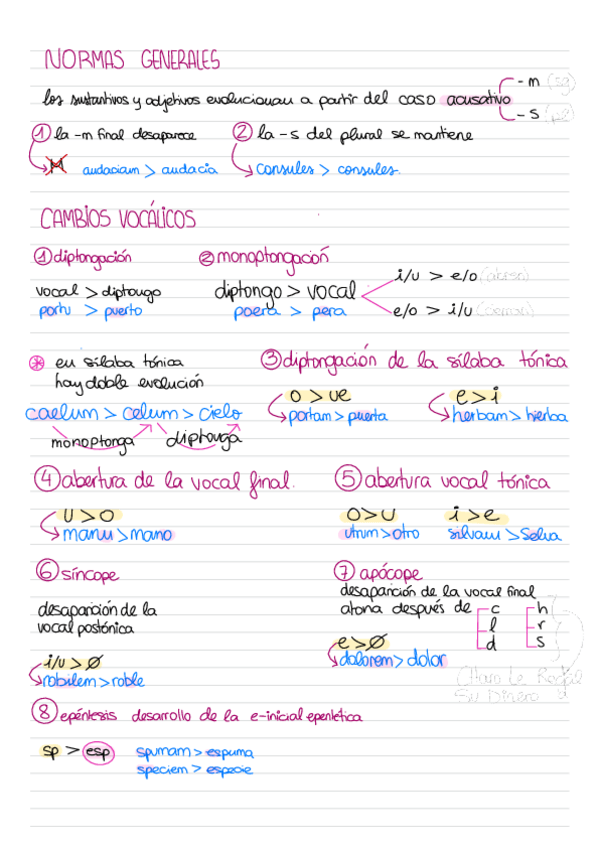 NORMAS GENERALES
los sustantivos y adjetivos evolucionan a partir del caso acusativo
-m (sg)
-s (pl)
① la -m final desaparece ② la -s del plural se mantiene
M audaciam > audacia consules > consules
CAMBIOS VOCÁLICOS
① diptongación ② monoptongación
vocal > diptongo diptongo > vocal
portu > puerto poena > pena
i/u > e/o
e/o > i/u
* en sílaba tónica
hay doble evolución
caelum > celum > cielo
monoptonga diptonga
③ diptongación de la sílaba tónica
o > ue e > i
portam > puerta herbam > hierba
④ abertura de la vocal final. ⑤ abertura vocal tónica
u > o o > u i > e
manu > mano utrum > otro silvam > Selva
⑥ síncope
desaparición de la
vocal postónica
i/u > ∅
robilem > roble
⑦ apócope
desaparición de la vocal final
atona después de
c h
l r
d s
e > ∅
dolorem > dolor
Su Dinero
⑧ epéntesis desarrollo de la e-inicial epentética
sp > esp spumam > espuma
speciem > especie